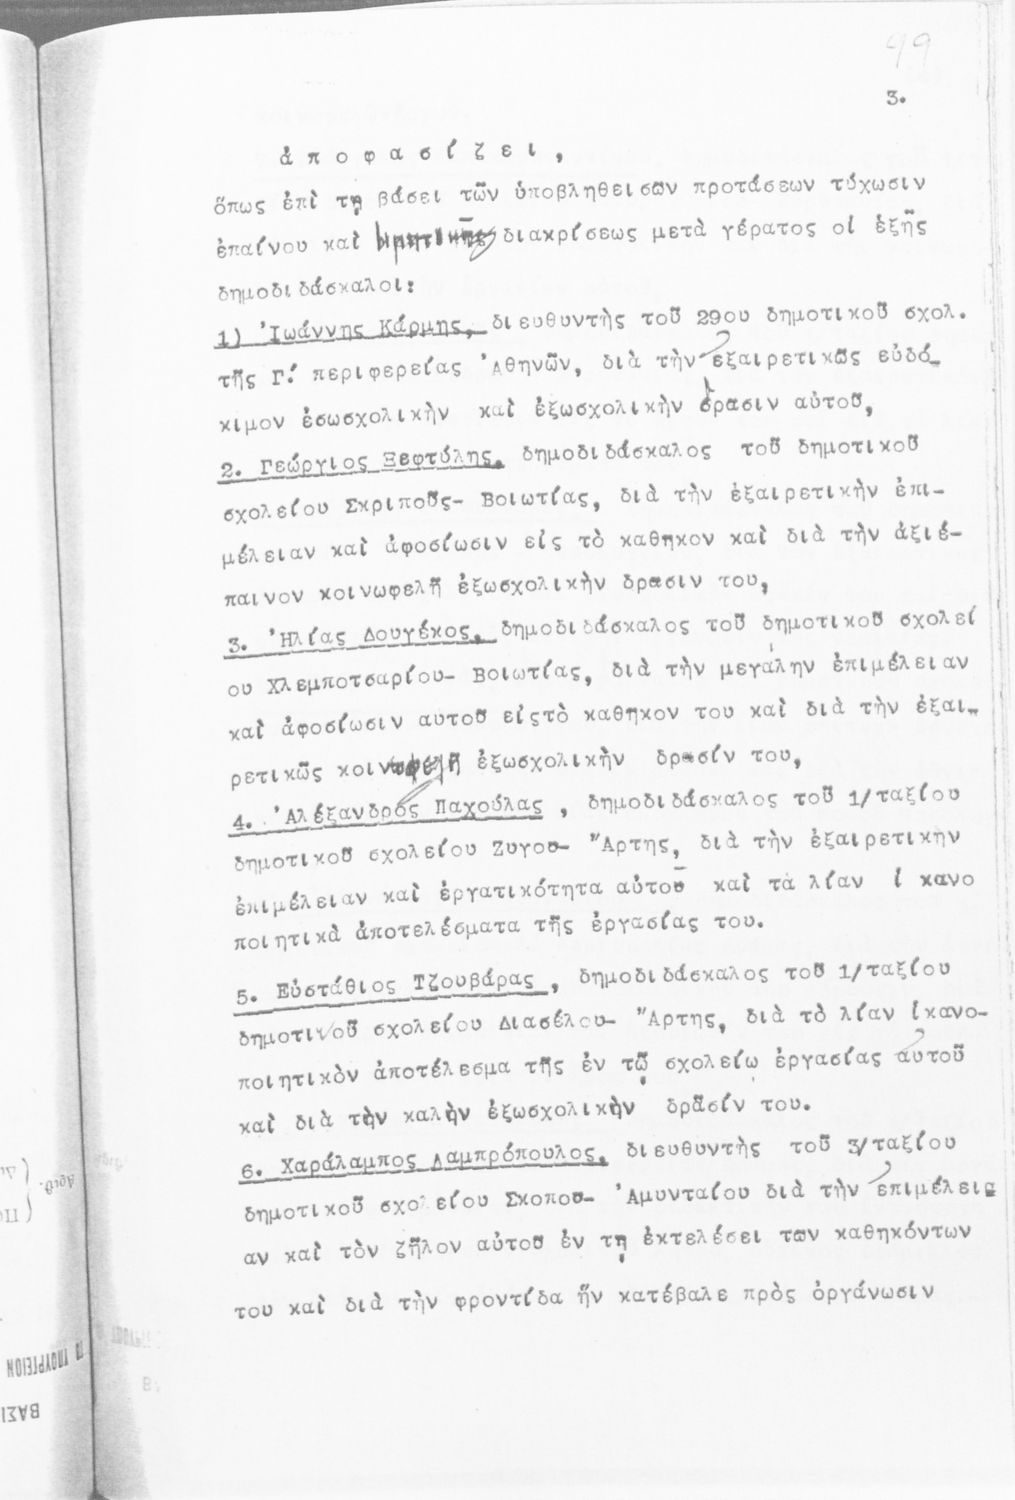 99
3.
ἀ π ο φ α σ ί ζ ε ι ,
ὅπως ἐπὶ τῃ βάσει τῶν ὑποβληθεισῶν προτάσεων τύχωσιν
ἐπαίνου καὶ διακρίσεως μετὰ γέρατος οἱ ἑξῆς
δημοδιδάσκαλοι:
1) Ἰωάννης Κάρμης, διευθυντὴς τοῦ 29ου δημοτικοῦ σχολ.
τῆς Γ.' περιφερείας Ἀθηνῶν, διὰ τὴν ἐξαιρετικῶς εὐδό-
κιμον ἐσωσχολικὴν καὶ ἐξωσχολικὴν δρασιν αὐτοῦ,
2. Γεώργιος Ξεφτύλης, δημοδιδάσκαλος τοῦ δημοτικοῦ
σχολείου Σκριποῦς- Βοιωτίας, διὰ τὴν ἐξαιρετικὴν ἐπι-
μέλειαν καὶ ἀφοσίωσιν εἰς τὸ καθηκον καὶ διὰ τὴν ἀξιέ-
παινον κοινωφελῆ ἐξωσχολικὴν δρασιν του,
3. Ἠλίας Δουγέκος, δημοδιδάσκαλος τοῦ δημοτικοῦ σχολεί
ου Χλεμποτσαρίου- Βοιωτίας, διὰ τὴν μεγάλην ἐπιμέλειαν
καὶ ἀφοσίωσιν αυτοῦ εἰςτὸ καθηκον του καὶ διὰ τὴν ἐξαι-
ρετικῶς κοινωφελῆ ἐξωσχολικὴν δρασίν του,
4. Ἀλέξανδρος Παχούλας , δημοδιδάσκαλος τοῦ 1/ταξίου
δημοτικοῦ σχολείου Ζυγου- Ἄρτης, διὰ τὴν ἐξαιρετικὴν
ἐπιμέλειαν καὶ ἐργατικότητα αὐτοῦ καὶ τὰ λίαν ἱ κανο
ποιητικὰ ἀποτελέσματα τῆς ἐργασίας του.
5. Εὐστάθιος Τζουβάρας , δημοδιδάσκαλος τοῦ 1/ταξίου
δημοτικοῦ σχολείου Διασέλου- Ἄρτης, διὰ τὸ λίαν ἱκανο-
ποιητικὸν ἀποτέλεσμα τῆς ἐν τῷ σχολείῳ ἐργασίας αὐτοῦ
καὶ διὰ τὴν καλὴν ἐξωσχολικὴν δρᾶσίν του.
6. Χαράλαμπος Λαμπρόπουλος, διευθυντὴς τοῦ 3/ταξίου
δημοτικοῦ σχολείου Σκοπου- Ἀμυνταίου διὰ τὴν ἐπιμέλει-
αν καὶ τὸν ζῆλον αὐτου ἐν τῃ ἐκτελέσει των καθηκόντων
του καὶ διὰ τὴν φροντίδα ἥν κατέβαλε πρὸς ὀργάνωσιν
ΤΟ ΥΠΟΥΡΓΕΙΟΝ
ΒΑΣΙ